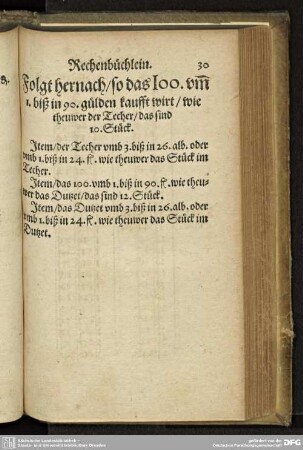 Rechenbüchlein. 30
Folgt hernach/so das 100. vm̄
1. biß in 90. gülden kaufft wirt/wie
theuwer der Techer/das sind
10. Stück.
Item/der Techer vmb 3. biß in 26. alb. oder
vmb 1. biß in 24. fl. wie theuwer das Stück im
Techer.
Item/das 100. vmb 1. biß in 90. fl. wie theu-
wer das Dutzet/das sind 12. Stück.
Item/das Dutzet vmb 3. biß in 26. alb. oder
vmb 1. biß in 24. fl. wie theuwer das Stück im
Dutzet.
Sächsische Landesbibliothek -
Staats- und Universitätsbibliothek Dresden
gefördert von der
Deutschen Forschungsgemeinschaft
DFG